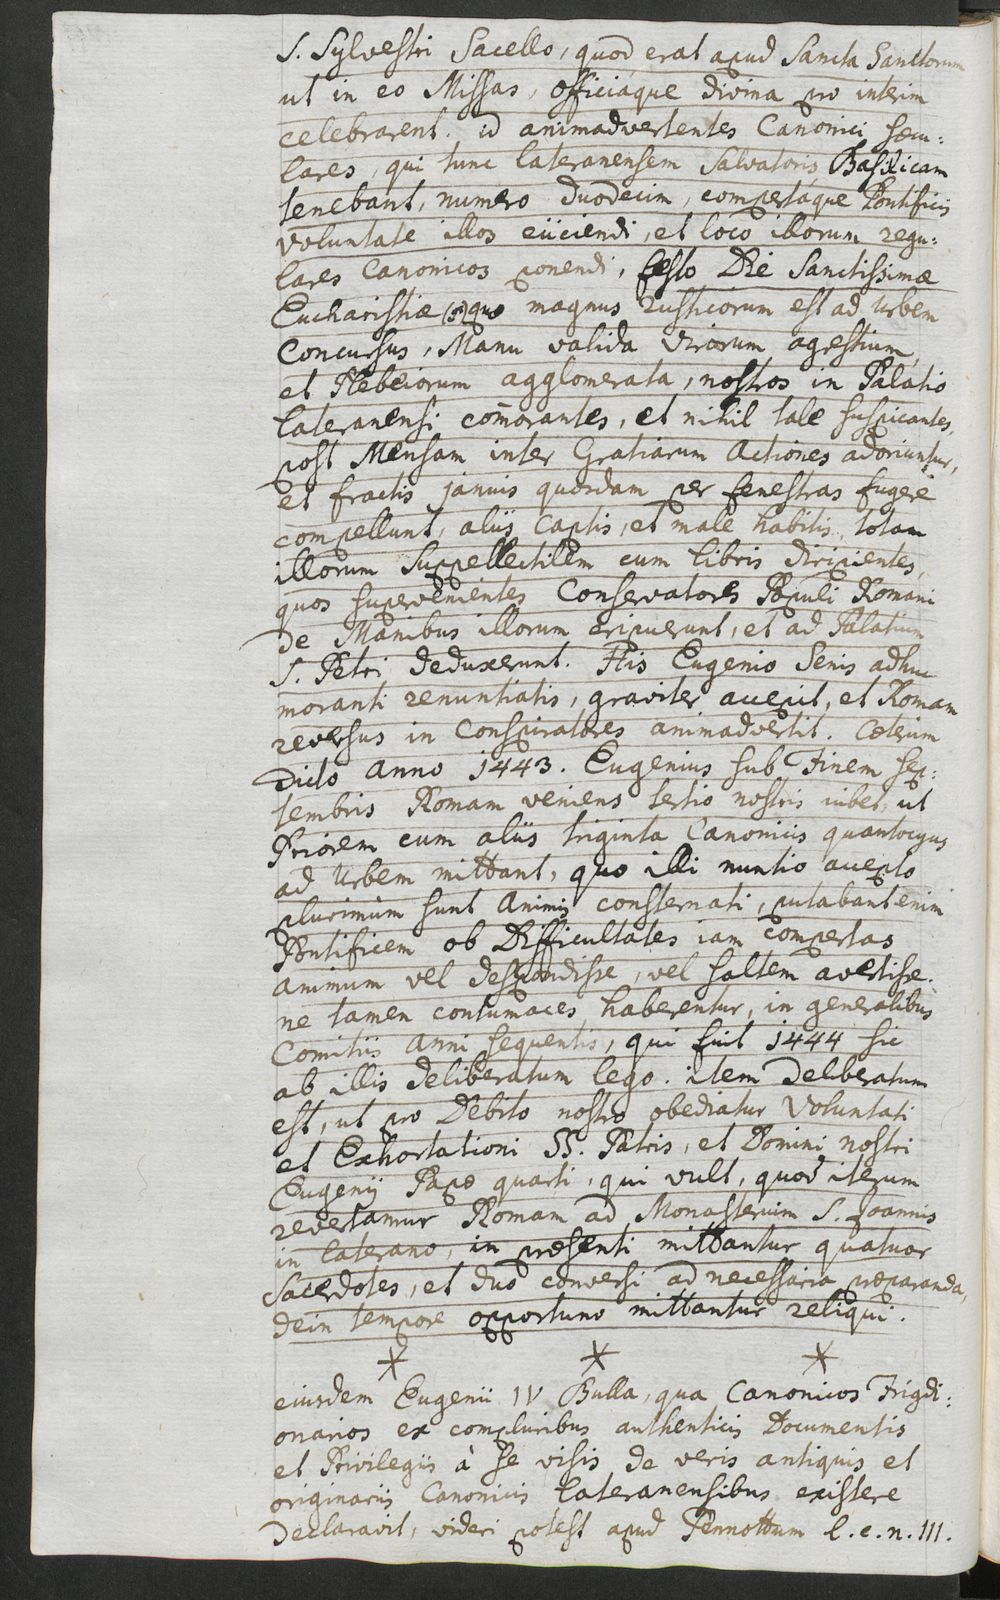 S. Sylvestri Sacello, quod erat apud Sancta Sanctorum
ut in eo Missas, officiáque divina pro interim
celebrarent. id animadvertentes Canonici sæcu:
lares, qui tunc lateranensem Salvatoris Basilicam
tenebant, numero duodecim, compertáque Pontificis
voluntate illos eiiciendi, et loco illorum regu:
lares Canonicos ponendi, festo Die Sanctissimæ
Eucharistiæ quo magnus rusticorum est ad Urbem
Concursus, Manu valida virorum agrestium,
et Plebeiorum agglomerata, nostros in Palatio
lateranensi com̄orantes, et nihil tale suspicantes,
post Mensam inter Gratiarum Actiones adoriuntur,
et fractis januis quosdam per fenestras fugere
compellunt, aliis captis, et male habitis, totam
illorum Suppellectilem cum libris diripientes,
quos supervenientes Conservatores Populi Romani
de Manibus illorum eripuerunt, et ad Palatium
S. Petri deduxerunt. His Eugenio Senis adhuc
moranti renuntiatis, graviter accepit, et Romam
reversus in Conspiratores animadvertit. Cæterum
Dicto Anno 1443. Eugenius sub Finem sep:
tembris Romam veniens tertio nostris iubet, ut
Priorem cum aliis triginta Canonicis quantocyus
ad Urbem mittant, quo illi nuntio accepto
plurimum sunt Animis consternati, putabant enim
Pontificem ob Difficultates iam compertas
animum vel despondisse, vel saltem avertisse.
ne tamen contumaces haberentur, in generalibus
Comitiis Anni sequentis, qui fuit 1444 sic
ab illis deliberatum lego. item Deliberatum
est, ut pro Debito nostro obediatur Voluntati
et Exhortationi SS. Patris, et Domini nostri
Eugenij Papæ quarti, qui vult, quod iterum
revertamur Romam ad Monasterium S. Joannis
in laterano, in præsenti mittantur quatuor
Sacerdotes, et duo conversi ad necessaria præparanda,
dein tempore opportuno mittantur reliqui.
* * *
eiusdem Eugenii IV Bulla, qua Canonicos Frigdi:
onarios ex compluribus authenticis Documentis
et Privilegiis à se visis de veris antiquis et
originariis Canonicis lateranensibus existere
Declaravit, videri potest apud Pennottum l. c. n. 111.